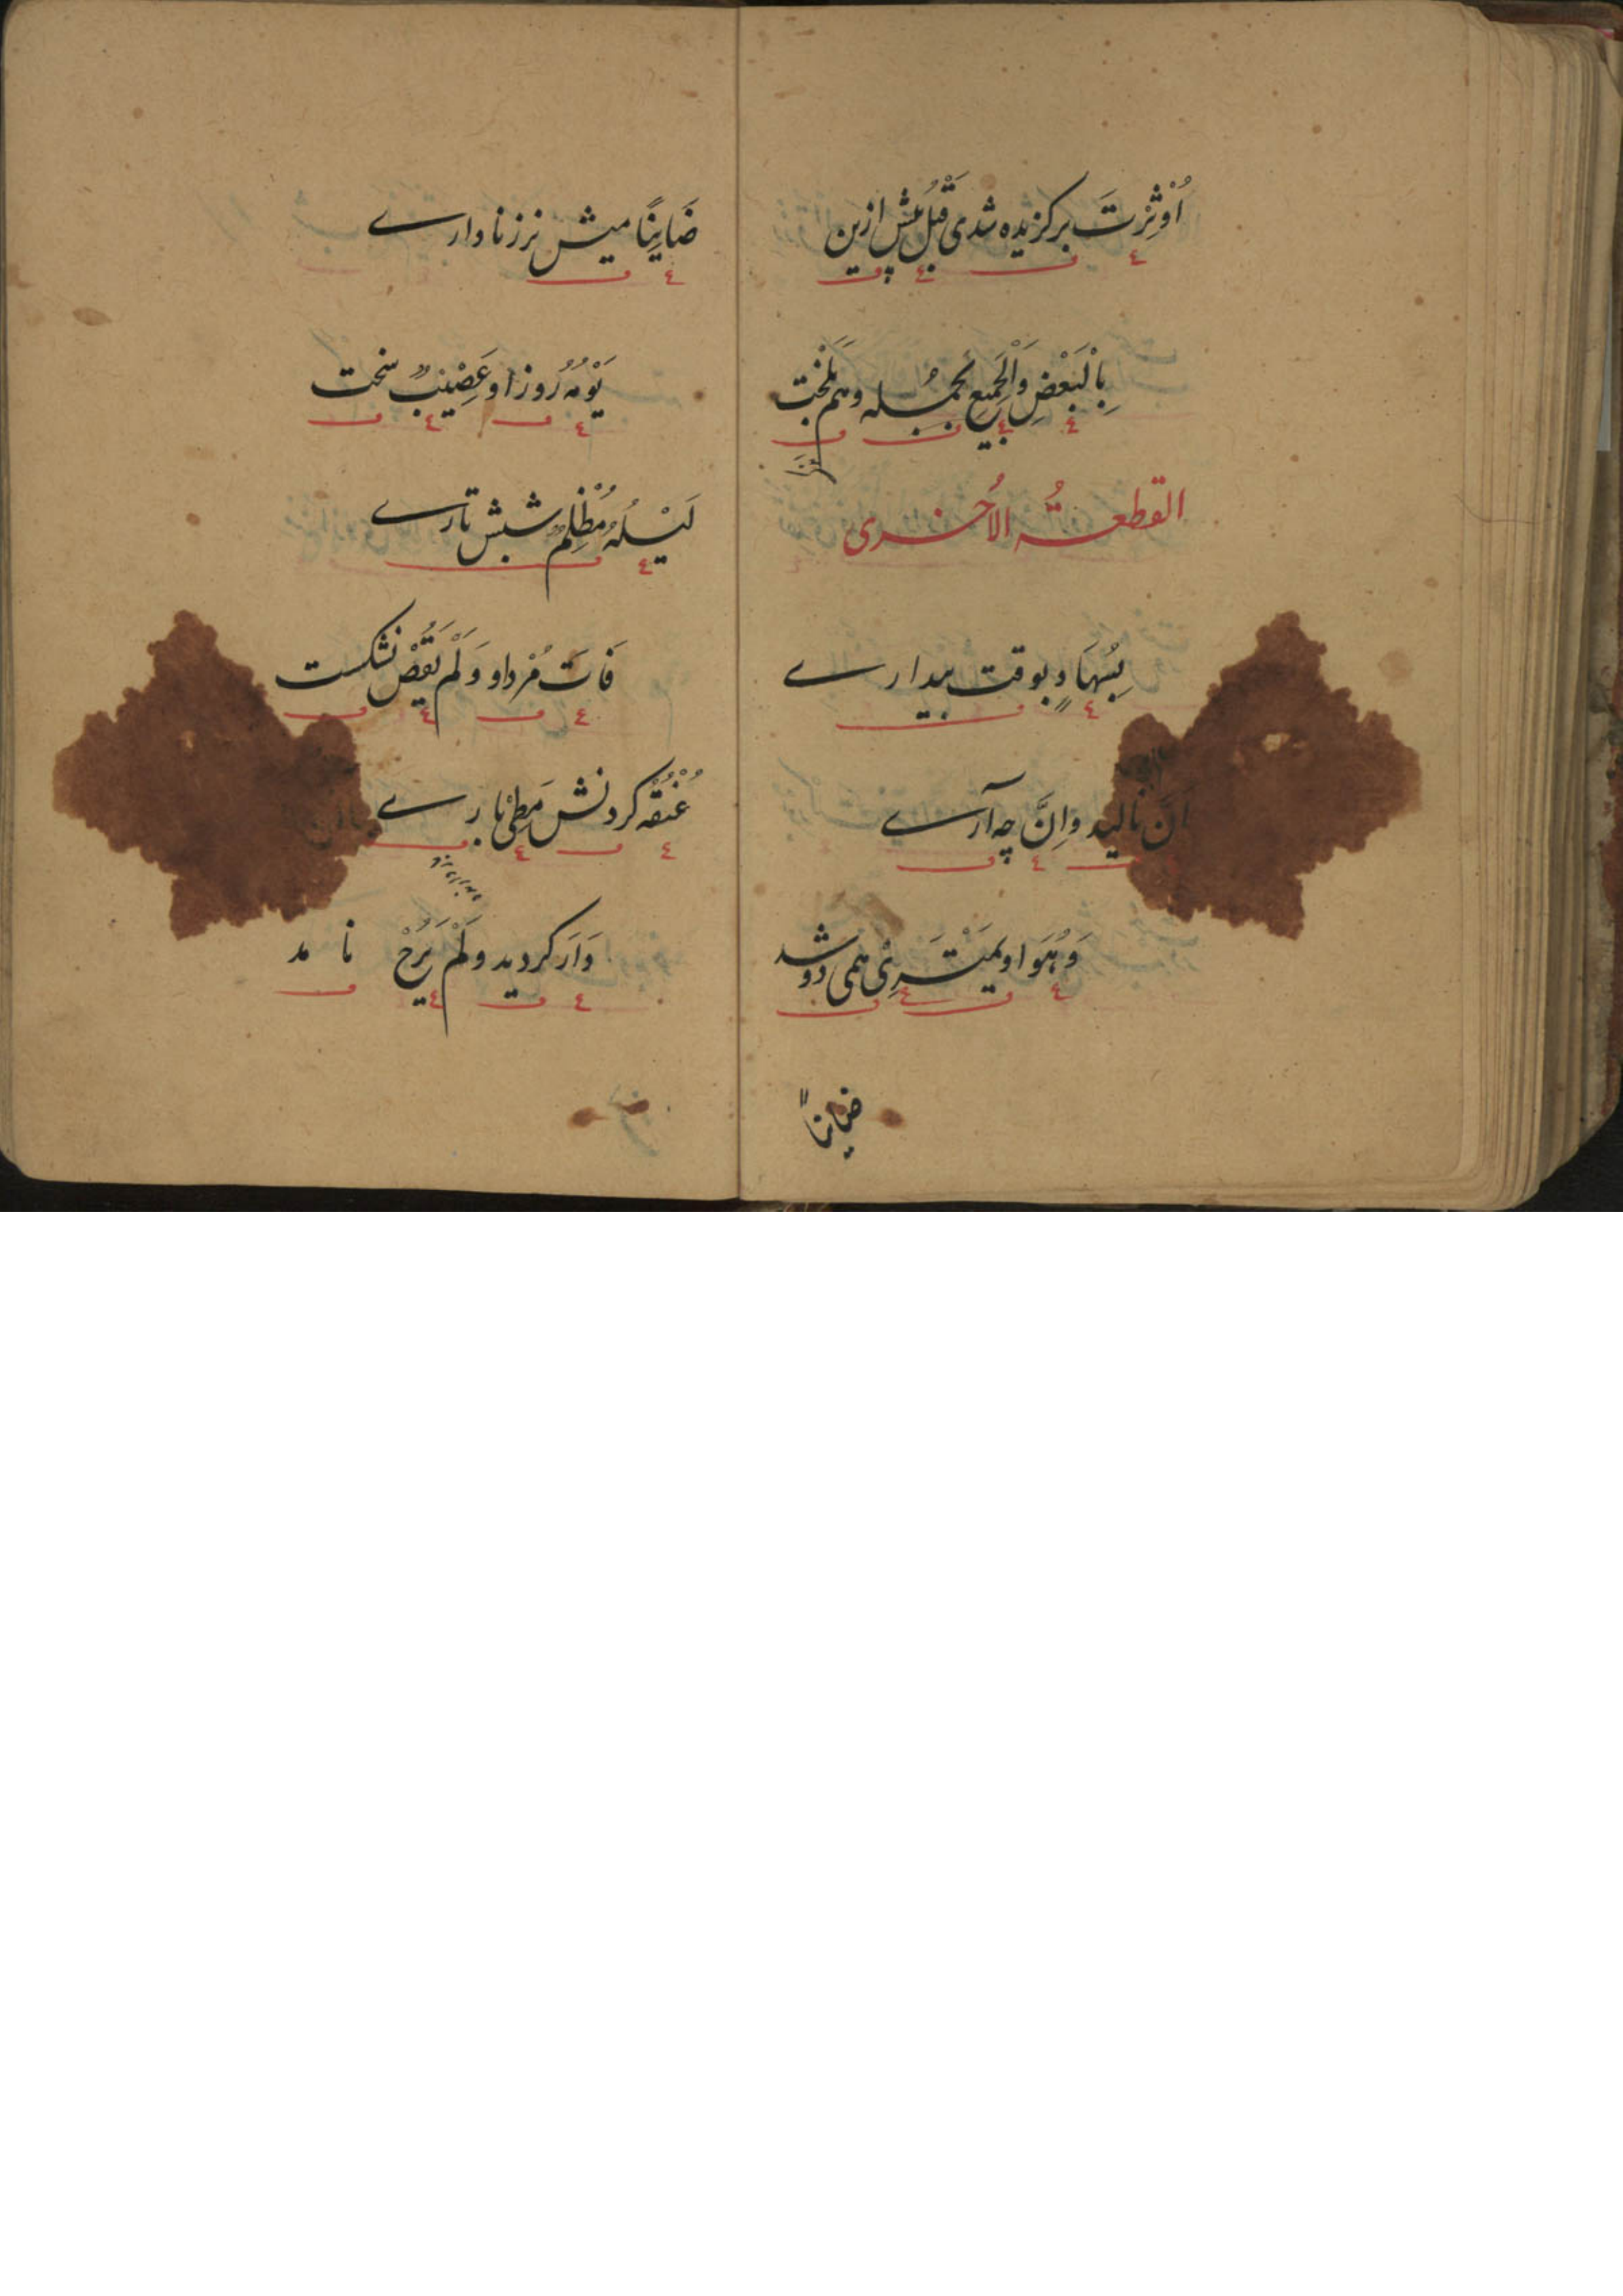 اُوْثِرْتَ برگزیده شدی قَبْلُ پیش ازین
بِالْبَعْضِ وَالْجَمِیْعِ بجُمله وهم بَلَخْت
القطعةُ الاُخریٰ
بِسُهَادٍ بوقت بیدارے
اَنَّ نالید و اِنَّ چه آرے
وَهُوَ او یَمْتَرِیْ همی دوشد
ضاینا"
ضَایِنًا میش نرزنا دارے
یَوْمُهُ روز او عَصِیْبٌ سخت
لَیْلُهُ مُظْلِمٌ شبش تارے
فَاتَ مُرد او وَلَمْ یَقُضْ نشکست
عُنْقُهُ گردنش مَطِیْ بارے
دَارَ گردید وَلَمْ یَرُحْ نا مد